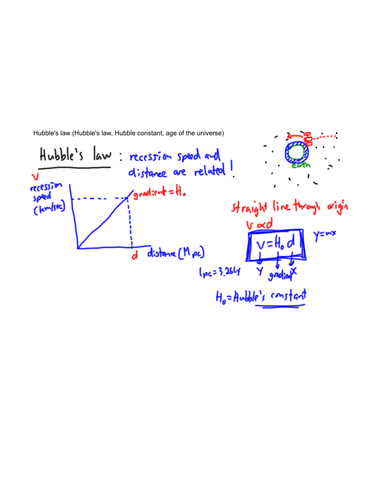 Hubble's law (Hubble's law, Hubble constant, age of the universe)
Hubble's law : recession speed and
distance are related!
Earth
v
recession
speed
(km/sec)
gradient = H₀
d
distance (Mpc)
straight line through origin
v ∝ d
v = H₀ d
y = mx
1pc = 3.26Ly
y gradient x
H₀ = Hubble's constant